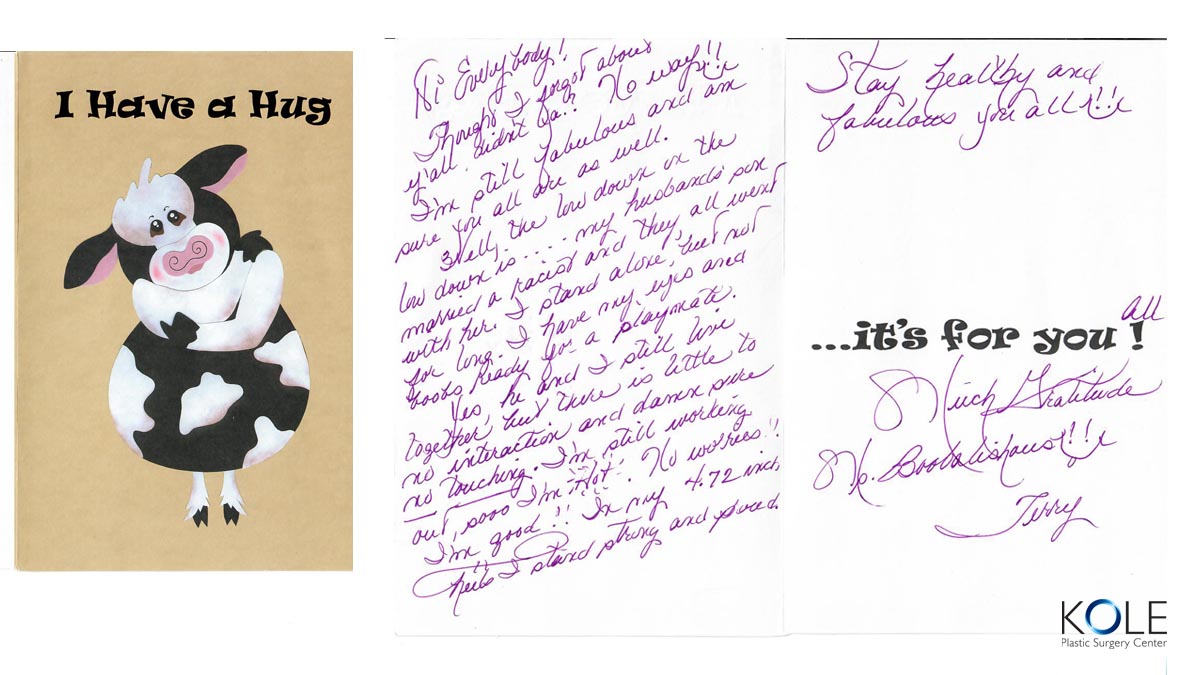 I Have a Hug
Hi Everybody!
Thought I forgot about
y'all didn't ya?? No way!!
I'm still fabulous and am
sure you all are as well.
Well, the low down on the
low down is.... my husband's son
married a racist and they all went
with her. I stand alone, but not
for long. I have my eyes and
boobs ready for a playmate.
Yes, he and I still live
together, but there is little to
no interaction and damn sure
no touching. I'm still working
out, sooo I'm Hot! No worries!!
I'm good!! In my 4.72 inch
heels I stand strong and proud.
Stay healthy and
fabulous you all!!
all
...it's for you!
Much Gratitude
Ms. Boobalishous!!
Terry
KOLE
Plastic Surgery Center